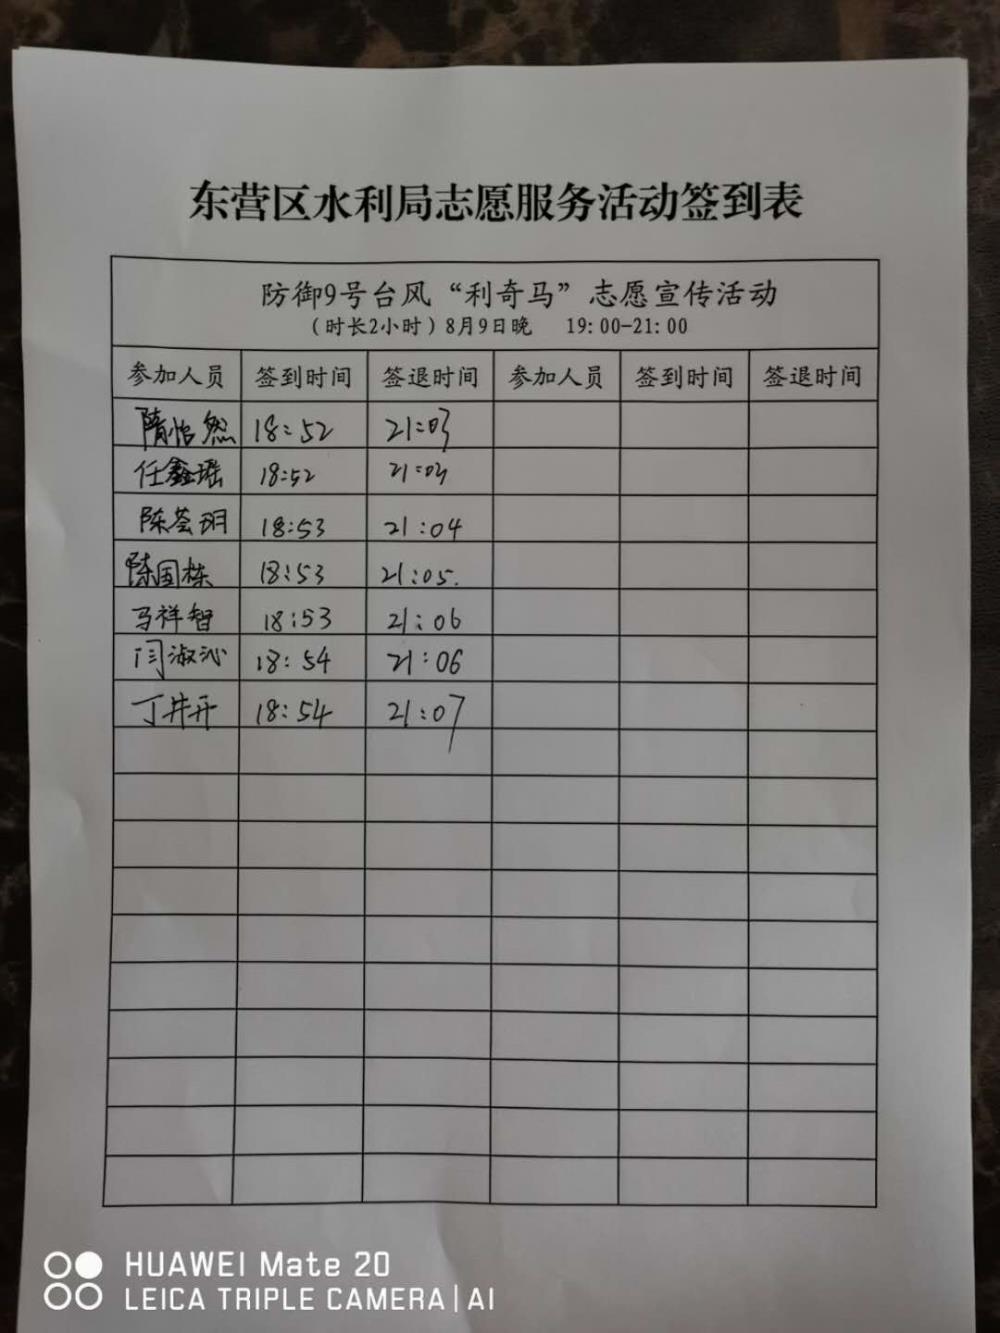 东营区水利局志愿服务活动签到表
防御9号台风“利奇马”志愿宣传活动
（时长2小时）8月9日晚 19:00-21:00
参加人员 签到时间 签退时间 参加人员 签到时间 签退时间
隋怡然 18:52 21:03
任鑫瑶 18:52 21:03
陈荟玥 18:53 21:04
陈国栋 18:53 21:05.
马祥智 18:53 21:06
闫淑沁 18:54 21:06
丁井开 18:54 21:07
HUAWEI Mate 20
LEICA TRIPLE CAMERA | AI